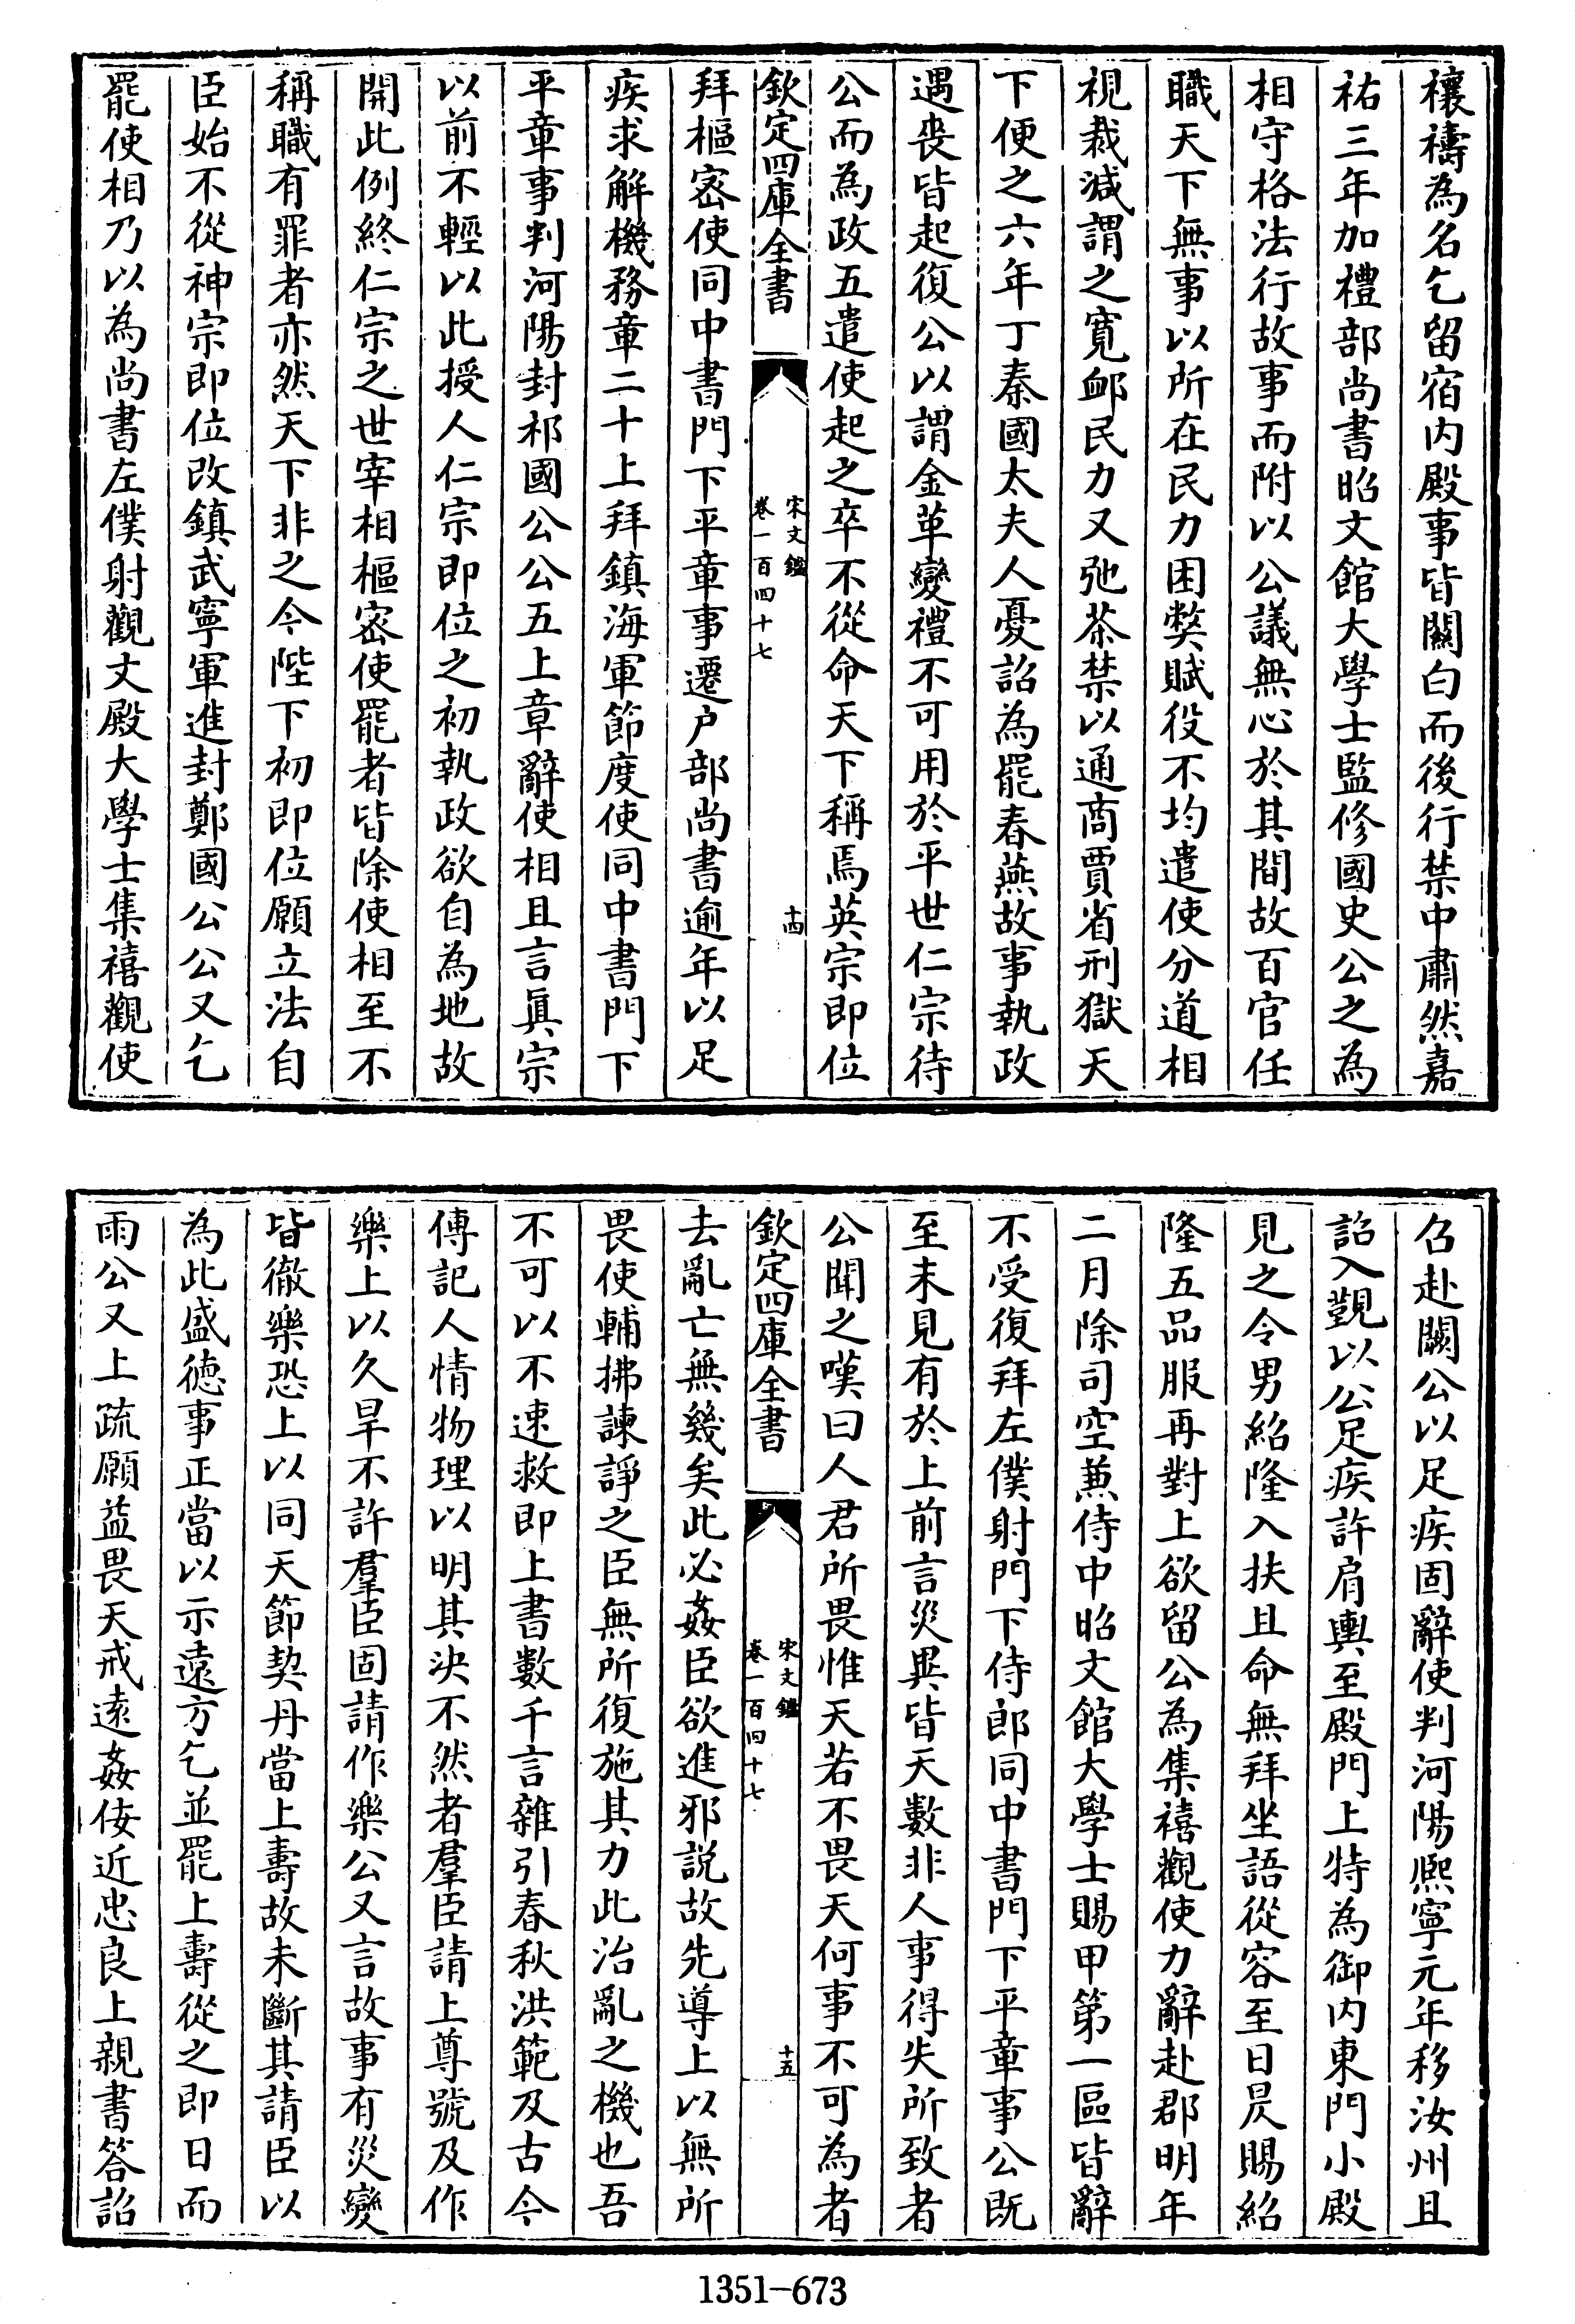 禳禱為名乞留宿内殿事皆關白而後行禁中肅然嘉
祐三年加禮部尚書昭文館大學士監修國史公之為
相守格法行故事而附以公議無心於其間故百官任
職天下無事以所在民力困弊賦役不均遣使分道相
視裁減謂之寛䘏民力又弛茶禁以通商賈省刑獄天
下便之六年丁秦國太夫人憂詔為罷春燕故事執政
遇丧皆起復公以謂金革變禮不可用於平世仁宗待
公而為政五遣使起之卒不從命天下稱焉英宗即位
欽定四庫全書
宋文鑑
卷一百四十七
十四
拜樞密使同中書門下平章事遷户部尚書逾年以足
疾求解機務章二十上拜鎮海軍節度使同中書門下
平章事判河陽封祁國公公五上章辭使相且言眞宗
以前不輕以此授人仁宗即位之初執政欲自為地故
開此例終仁宗之世宰相樞密使罷者皆除使相至不
稱職有罪者亦然天下非之今陛下初即位願立法自
臣始不從神宗即位改鎮武寧軍進封鄭國公公又乞
罷使相乃以為尚書左僕射觀文殿大學士集禧觀使
召赴闕公以足疾固辭使判河陽熈寧元年移汝州且
詔入覲以公足疾許肩輿至殿門上特為御内東門小殿
見之令男紹隆入扶且命無拜坐語從容至日昃賜紹
隆五品服再對上欲留公為集禧觀使力辭赴郡明年
二月除司空兼侍中昭文館大學士賜甲第一區皆辭
不受復拜左僕射門下侍郎同中書門下平章事公既
至未見有於上前言災異皆天數非人事得失所致者
公聞之嘆曰人君所畏惟天若不畏天何事不可為者
欽定四庫全書
宋文鑑
卷一百四十七
十五
去亂亡無幾矣此必姦臣欲進邪説故先導上以無所
畏使輔拂諫諍之臣無所復施其力此治亂之機也吾
不可以不速救即上書數千言雜引春秋洪範及古今
傳記人情物理以明其决不然者羣臣請上尊號及作
樂上以久旱不許羣臣固請作樂公又言故事有災變
皆徹樂恐上以同天節契丹當上壽故未斷其請臣以
為此盛德事正當以示遠方乞並罷上壽從之即日而
雨公又上疏願益畏天戒遠姦佞近忠良上親書答詔
1351-673